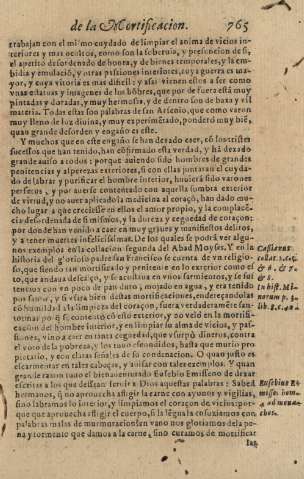 de la Mortificacion. 765
trabajan con el mismo cuydado de limpiar el anima de vicios in-
teriores y mas ocultos, como son la soberuia, y presuncion de si,
el apetito desordenado de honra, y de bienes temporales, y la em-
bidia y emulació, y otras passiones interiores, cuya guerra es ma-
yor, y cuya vitoria es mas dificil: y assi vienen estos a ser como
vnas estatuas y imagenes de los hóbres, que por de fuera está muy
pintadas y doradas, y muy hermosas, y de dentro son de baxa y vil
materia. Todas estas son palabras de san Arsenio, que como varon
muy lleno de luz diuina, y muy experimétado, ponderó muy bié,
quan grande desorden y engaño es este.
Y muchos que en este engaño se han dexado caer, có los tristes
sucessos que han tenido, han cófirmado esta verdad, y há dexado
grande auiso a todos: porque auiendo sido hombres de grandes
penitencias y asperezas exteriores, si con ellas juntaran el cuyda-
do de labrar y purificar el hombre interior, huuierá sido varones
perfetos, y por auerse contentado con aquella sombra exterior
de virtud, y no auer aplicado la medicina al coraçó, han dado mu-
cho lugar a que creciesse en ellos el amor propio, y la complacé-
cia desordenada de si mismos, y la dureza y ceguedad de coraçon:
por donde han venido a caer en muy graues y manifiestos delitos,
y a tener muertes infelicissimas. De los quales se podrá ver algu-
nos exemplos en la collacion segunda del Abad Moyses. Y en la
historia del glorioso padre san Francisco se cuenta de vn religio-
so, que siendo tan mortificado y penitente en lo exterior como es
to, que andaua descalço, y se açotaua en varios tiempos, y se su-
tentaua con vn poco de pan duro, mojado en agua, y era tenido
por santo, y si estas bien dichas mortificaciones, endereçandolas
có humildad a la limpieza del coraçon, fuera verdaderaméte san-
to: mas porq́ se contentó có esso exterior, y no veló en la mortifi-
cacion del hombre interior, y en limpiar su alma de vicios, y pas-
siones, vino a caer en tanta ceguedad, que
el voto de la pobreza, y los tuuo escondidos, hasta que murio pro
pietario, y con claras señales de su condenacion. O quan justo es
escarmentar en tales cabeças, y auisar con tales exemplos. Y quan
grande razon tuuo el bienauenturado Eusebio Emisseno de dexar
escritas a los que dessean seruir a Dios aquestas palabras: Sabed
hermanos, q́ no aprouecha afligir la carne con ayunos y vigilias,
sino labramos lo interior, y limpiamos el coraçon de vicios: por-
que que aprouecha afligir el cuerpo, si la légua la ensuziamos con
palabras malas de murmuracion? en vano nos gloriamos de la pe-
na y tormento que damos a la carne, sino curamos de mortificar
las
Cassianus
collat. 2.
hist. Mi-
norum p. 3.
Eusebius E-
missen. hom.
ad mona-
chos.